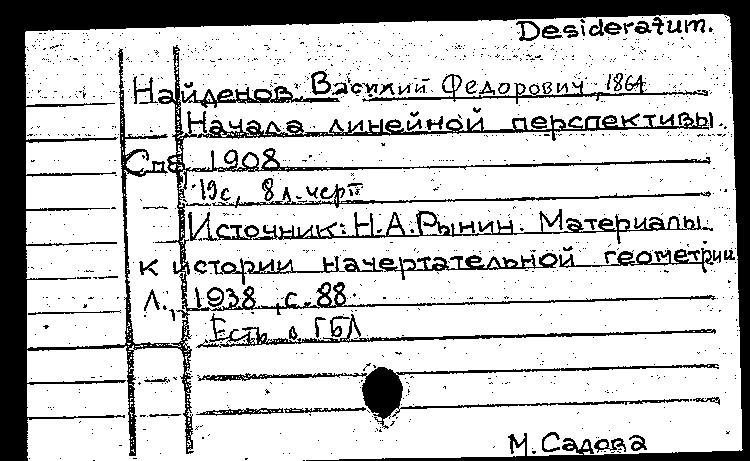 Desideratum.
Найденов. Василий Федорович, 1864
Начала линейной перспективы.
Спб 1908
19с, 8 л. черт
Источник: Н.А.Рынин. Материалы
к истории начертательной геометрии
Л., 1938, с. 88.
Есть в ГБЛ
М. Садова